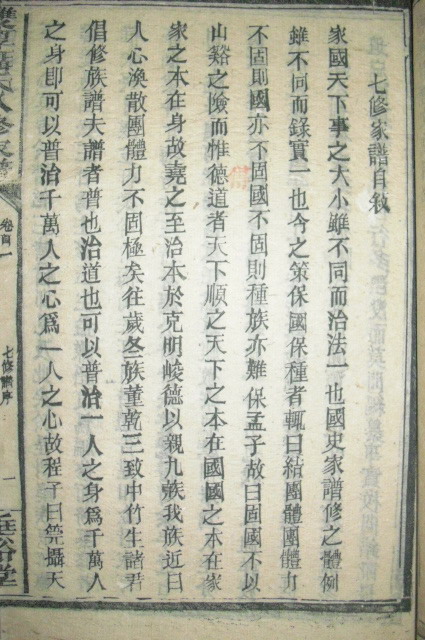 七修家譜自敘
家國天下事之大小雖不同而治法一也國史家譜修之體例
雖不同而錄實一也今之策保國保種者輒曰結團體團體力
不固則國亦不固國不固則種族亦難保孟子故曰固國不以
山谿之險而惟德道者天下順之天下之本在國國之本在家
家之本在身故堯之至治本於克明峻德以親九族我族近日
人心渙散團體力不固極矣往歲冬族董乾三致中竹生諸君
倡修族譜夫譜者普也治道也可以普治一人之身為千萬人
之身即可以普治千萬人之心為一人之心故程子曰筦攝天
卷首一
七修譜序
一